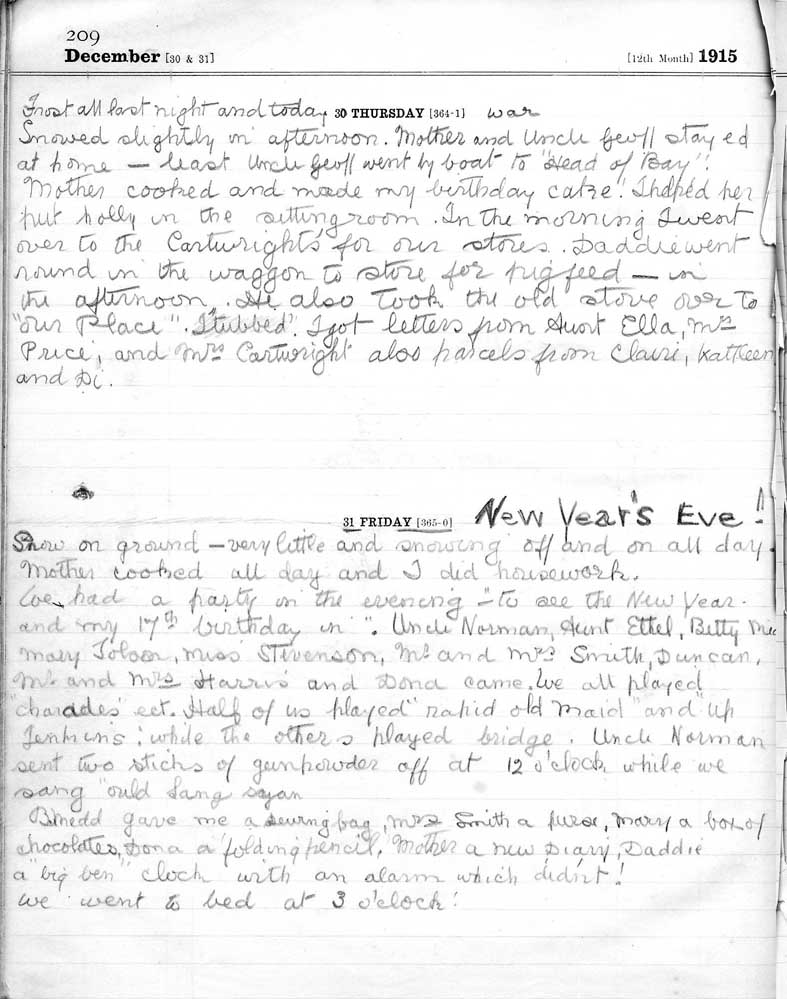 209
December [30 & 31] [12th Month] 1915
Frost all last night and today 30 THURSDAY [364-1] war
Snowed slightly in afternoon. Mother and Uncle Geoff stayed
at home — least Uncle Geoff went by boat to "Head of Bay"!
Mother cooked and made my birthday cake! I helped her
put holly in the sittingroom. In the morning I went
over to the Cartwrights, for our stores. Daddie went
round in the waggon to store for pigfeed — in
the afternoon, He also took the old stove over to
"our Place". I tubbed". I got letters from Aunt Ella, Mrs
Price, and Mrs Cartwright alos parcels from Claire, Kathleen
and Di.
31 FRIDAY [365-0] New Year's Eve!
Snow on ground — very little and snowing off and on all day.
Mother cooked all day and I did housework.
We had a party in the evening "to see the New Year
and my 17th birthday in". Uncle Norman, Aunt Ethel, Betty
Mary Tolson, Miss Stevenson, Mr and Mrs Smith, Duncan,
Mr and Mrs Harris and Dona came. We all played
"charades" ect. Half of us played "rapid old maid" and "Up
Jenkins; while the others played bridge. Uncle Norman
sent two sticks of gunpowder off at 12 o'clock while we
sang "ould lang syan
BMedd gave me a sewing bag, Mrs Smith a purse, Mary a box of
chocolates, Dona a folding pencil, Mother a new Diary, Daddie
a "big ben" clock with an alarm which didn't!
We went to bed at 3 o'clock!